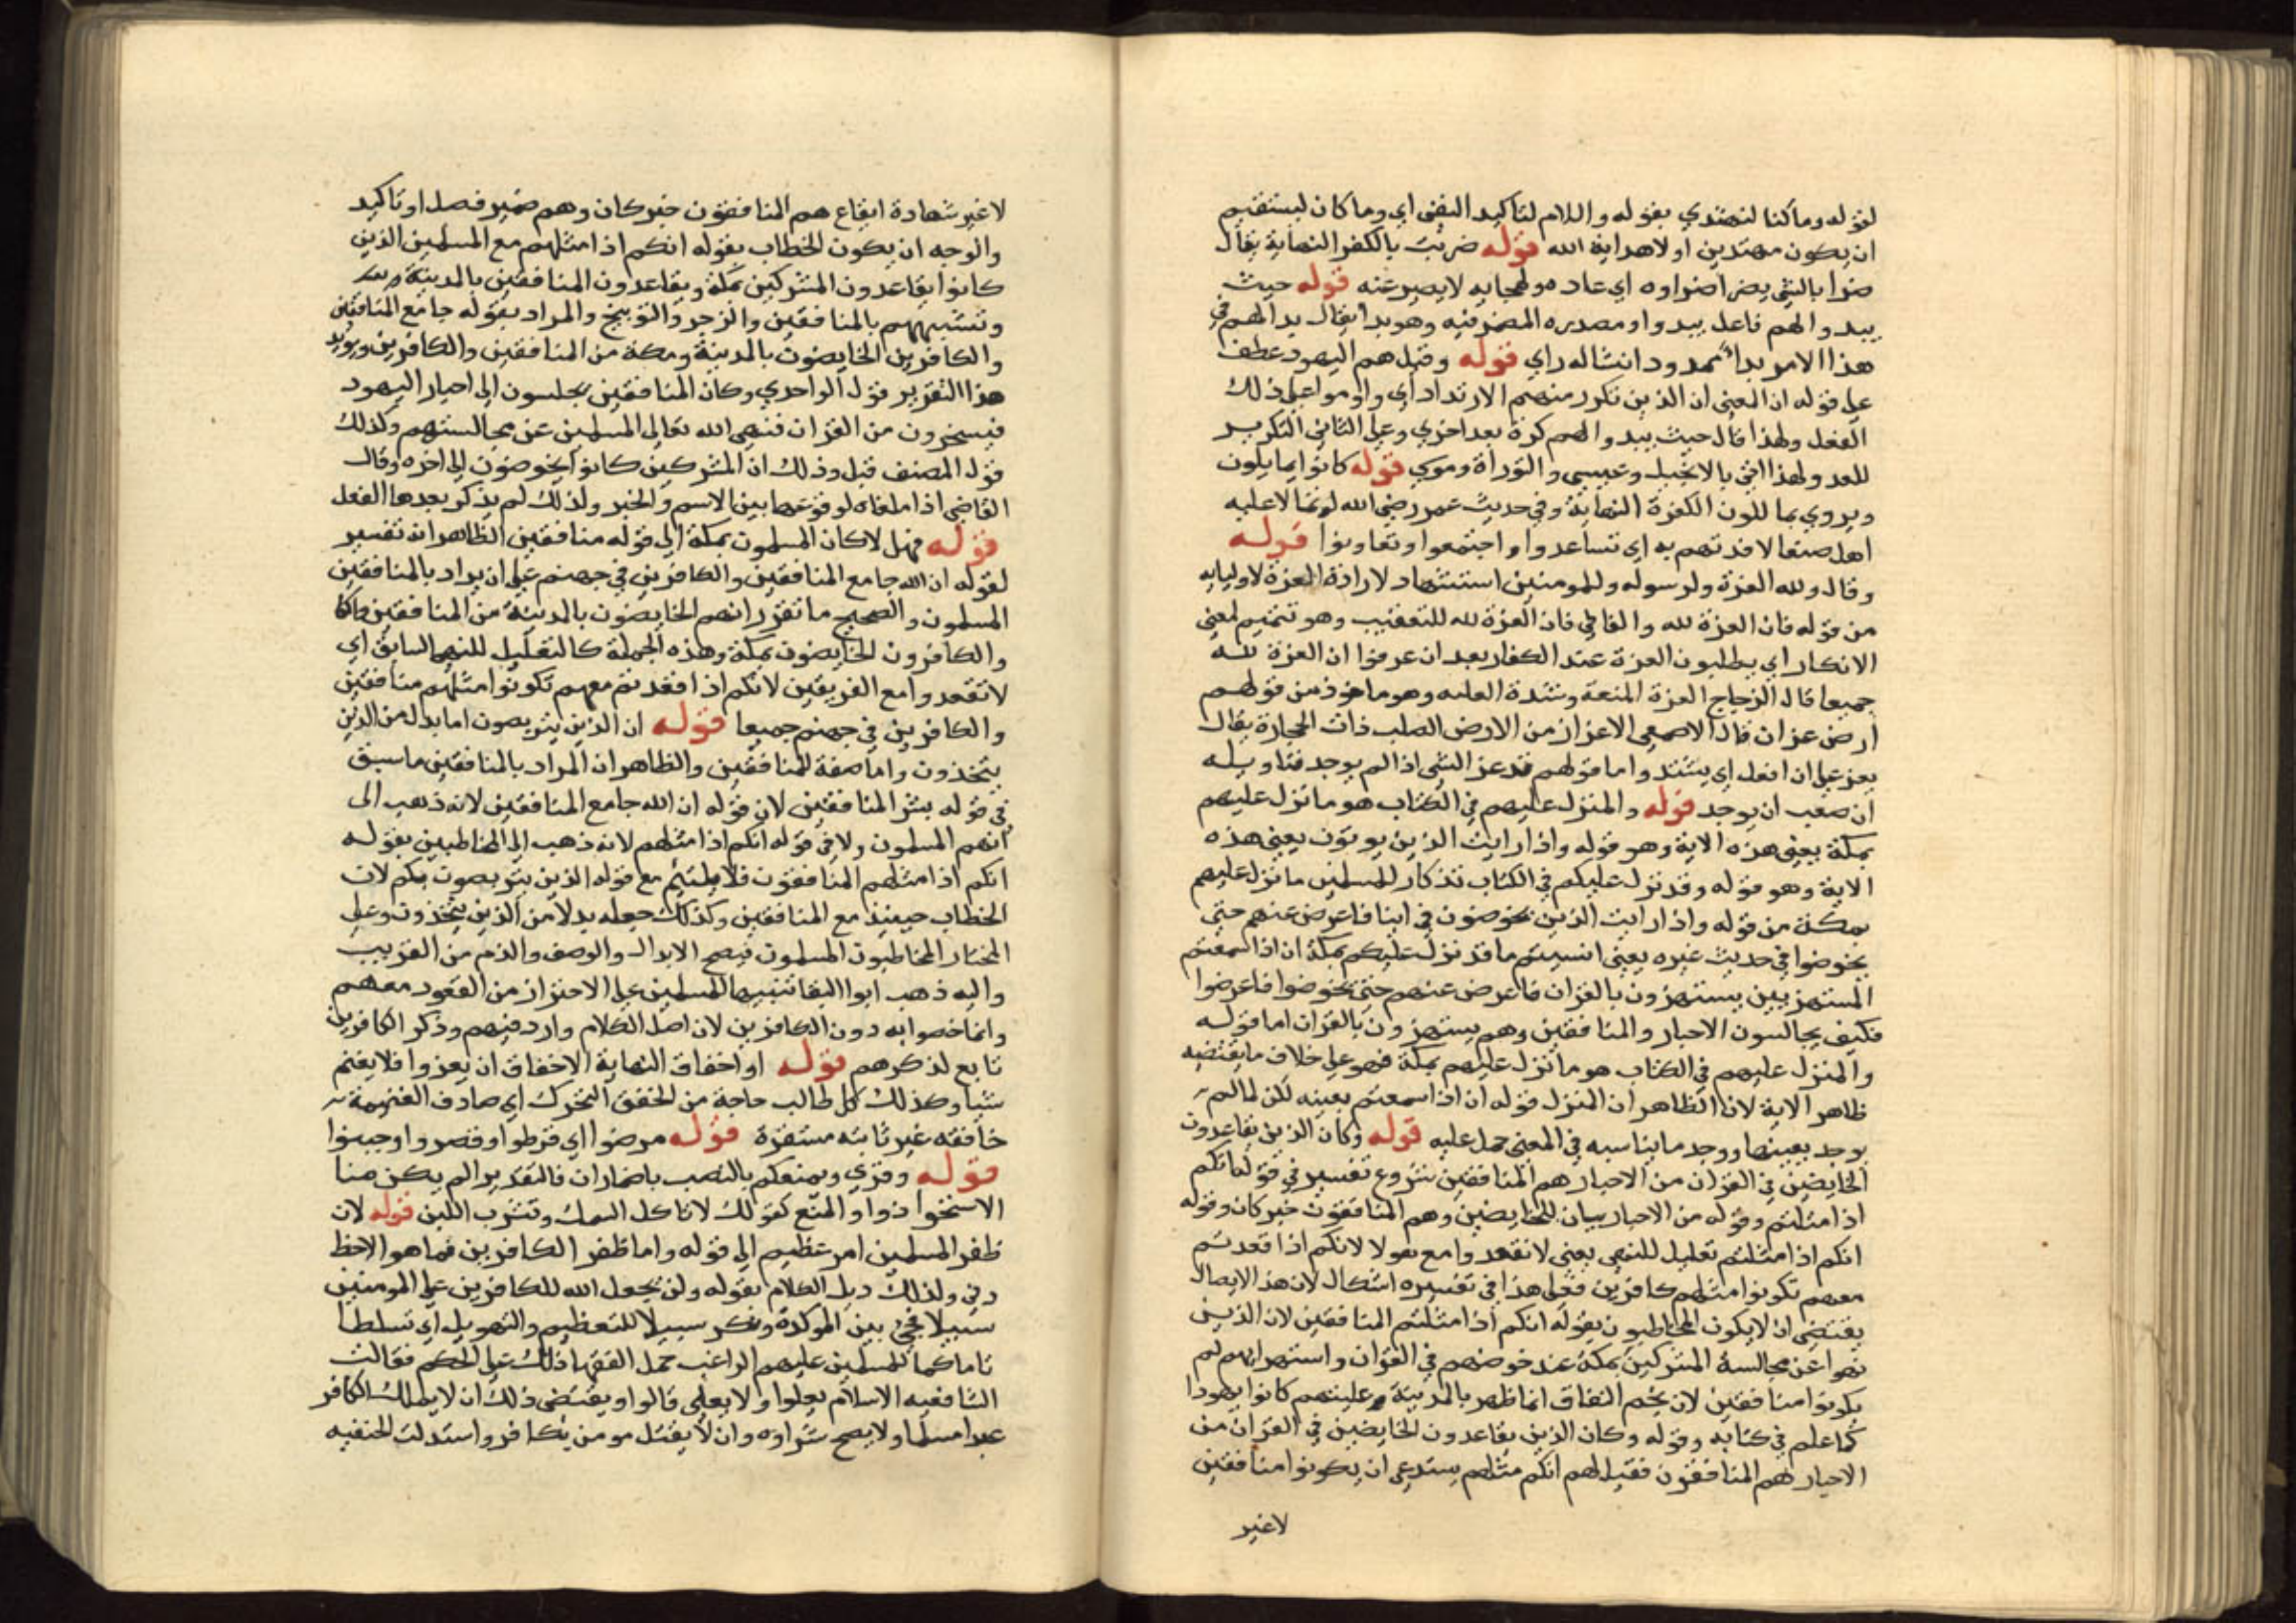 لقوله وما كنا لنهتدي بقوله واللام لتاكيد النفي اي وما كان ليستقيم
ان يكون مهتدين اولا هداية الله قوله ضريت بالكفر النهاية يقال
ضرا بالشي يضرا ضراوه اي عاده ولهجا به لا يصبر عنه قوله حيث
يبدوا لهم فاعل يبدوا ومصدره المضمر فيه وهو بدا يقال بدا لهم في
هذا الامر بداء ممدود انشا له راي قوله وقيل هم اليهود عطف
على قوله ان المعنى ان الذين تكرر منهم الارتداد اي وداوموا على ذلك
الفعل ولهذا قال حيث يبدوا لهم كرة بعد اخرى وعلى الثاني التكرير
للعد ولهذا اتى بالانجيل وعيسى والتوراة وموسى قوله كانوا يمايلون
ويروى يمالئون الكفرة النهاية وفي حديث عمر رضي الله لو تمالا عليه
اهل صنعا لاقدتهم به اي تساعدوا واجتمعوا وتعاونوا قوله
وقال ولله العزة ولرسوله وللمومنين استشهاد لارادة العزة لاوليايه
من قوله فان العزة لله والفا في فان العزة لله للتعقيب وهو تتميم لمعنى
الانكار اي يطلبون العزة عند الكفار بعد ان عرفوا ان العزة لله
جميعا قال الزجاج العزة المنعة وشدة الغلبه وهو ماخوذ من قولهم
ارض عزاز قال الاصمعي الاعزاز من الارض الصلب ذات الحجارة يقال
يعز على ان افعل اي يشتد واما قولهم قد عز الشي اذا لم يوجد فتاويله
ان صعب ان يوجد قوله والمنزل عليهم في الكتاب هو ما نزل عليهم
بمكة يعني هذه الاية وهو قوله واذا رايت الذين يعني هذه
الاية وهو قوله وقد نزل عليكم في الكتاب تذكار للمسلمين ما نزل عليهم
بمكة من قوله واذا رايت الذين يخوضون في اياتنا فاعرض عنهم حتى
يخوضوا في حديث غيره يعني انسيتم ما قد نزل عليكم بمكة ان اذا سمعتم
المستهزيين يستهزون بالقران فاعرض عنهم حتى يخوضوا فاعرضوا
فكيف يجالسون الاحبار والمنافقين وهم يستهزون بالقران اما قوله
والمنزل عليهم في الكتاب هو ما نزل عليهم بمكة فهو على خلاف ما يقتضيه
ظاهر الاية لان الظاهر ان المنزل قوله ان اذا سمعتم بعينه لكن لما لم
يوجد بعينها ووجد ما يناسبه في المعنى حمل عليه قوله وكان الذين يقاعدون
الخايضين في القران من الاحبار هم المنافقين شروع تفسير في قوله انكم
اذا مثلهم وقوله من الاحبار بيان للخايضين وهم المنافقون خبر كان وقوله
انكم اذا مثلهم تعليل للنهي يعني لا تقعدوا مع هولا لانكم اذا قعدتم
معهم تكونوا مثلهم كافرين فعلى هذا في تفسيره اشكال لان هذا الايصال
يقتضي ان لا يكون المخاطبون بقوله انكم اذا مثلهم المنافقين لان الذين
نهوا عن مجالسة المشركين بمكة عند خوضهم في القران واستهزايهم لم
يكونوا منافقين لان نجم النفاق انما ظهر بالمدينة وعليتهم كانوا يهودا
كما علم في كتابه وقوله وكان الذين يقاعدون الخايضين في القران من
الاحبار هم المنافقون فقيل لهم انكم مثلهم يستدعي ان يكونوا منافقين
لا غير
لا غير شهادة ايقاع هم المنافقون خبر كان وهم ضمير فصل او تاكيد
والوجه ان يكون الخطاب بقوله انكم اذا مثلهم مع المسلمين الذين
كانوا يقاعدون المشركين بمكة ويقاعدون المنافقين بالمدينة
وتشبيههم بالمنافقين والزجر والتوبيخ والمراد بقوله جامع المنافقين
والكافرين الخايضون بالمدينة ومكة من المنافقين والكافرين ويويد
هذا التقرير قول الواحدي وكان المنافقين يجلسون الى احبار اليهود
فيسخرون من القران فنهى الله تعالى المسلمين عن مجالستهم وكذلك
قول المصنف قبل وذلك ان المشركين كانوا يخوضون الى اخره وقال
القاضي اذا ملغاة لوقوعها بين الاسم والخبر ولذلك لم يذكر بعدها الفعل
قوله فهل لا كان المسلمون بمكة الى قوله منافقين الظاهر انه تفسير
لقوله ان الله جامع المنافقين والكافرين في جهنم على ان يراد بالمنافقين
المسلمون والصحيح ما تقرر انهم الخايضون بالمدينة من المنافقين
والكافرون الخايضون بمكة وهذه الجملة كالتعليل للنهي السابق اي
لا تقعدوا مع الفريقين لانكم اذا قعدتم معهم تكونوا مثلهم منافقين
والكافرين في جهنم جميعا قوله ان الذين يتربصون اما بدل من الذين
يتخذون واما صفة للمنافقين والظاهر ان المراد بالمنافقين ما سبق
في قوله بشر المنافقين لان قوله ان الله جامع المنافقين لانه ذهب الى
انهم المسلمون ولا في قوله انكم اذا مثلهم لانه ذهب الى المخاطبين بقوله
انكم اذا مثلهم المنافقون فلا يلتئم مع قوله الذين يتربصون بكم لان
الخطاب حينيذ مع المنافقين وكذلك جعله بدلا من الذين يتخذون وعلى
المختار المخاطبون المسلمون فيصح الابدال والوصف والذم من القريب
واليه ذهب ابو البقا تنبيها للمسلمين على الاحتراز من القعود معهم
وانما خصوا به دون الكافرين لان اصل الكلام وارد فيهم وذكر الكافرين
تابع لذكرهم قوله او اخفاق النهاية الاخفاق ان يغزوا فلا يغنم
شيا وكذلك كل طالب حاجة من الخفق التحرك اي صادف الغنيمة
خافقه غير ثابته مستقرة قوله مرضوا اي فرطوا وقصروا وجبنوا
قوله وقرئ ونمنعكم بالنصب باضمار ان فالتقدير الم يكن منا
الاستحواذ والمنع كقولك لا تاكل السمك وتشرب اللبن قوله لان
ظفر المسلمين امر عظيم الى قوله واما ظفر الكافرين فما هو الا حظ
دني ولذلك ذيل الكلام بقوله ولن يجعل الله للكافرين على المومنين
سبيلا فجئ بين الموكدة ونكر سبيلا للتعظيم والتهويل اي تسلطا
تاما كما للمسلمين عليهم الراغب حمل الفقها ذلك على الحكم فقالت
الشافعيه الاسلام يعلوا ولا يعلى قالوا ويقتضى ذلك ان لا يملك الكافر
عبدا مسلما ولا يصح شراوه وان لا يقتل مومن بكافر واستدلت الحنفيه